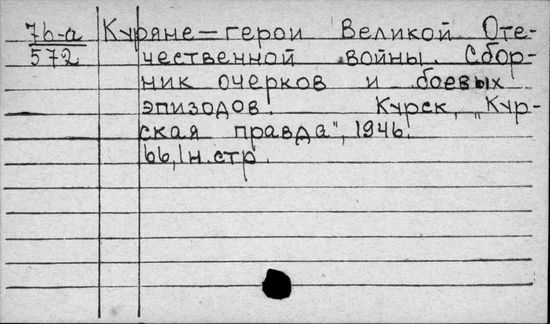 7б-а Куряне—герои Великой Оте-
572 чественной войны. Сбор-
ник очерков и боевых
эпизодов. Курск, „Кур-
ская правда", 1946.
66,1н.стр.